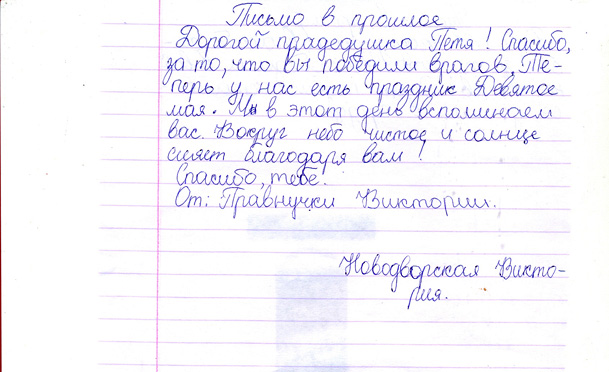 Письмо в прошлое
Дорогой прадедушка Петя! Спасибо,
за то, что вы победили врагов, Те-
перь у нас есть праздник Девятое
мая. Мы в этот день вспоминаем
вас. Вокруг небо чистое и солнце
сияет благодаря вам!
Спасибо, тебе.
От: Правнучки Виктории.
Новодворская Викто-
рия.